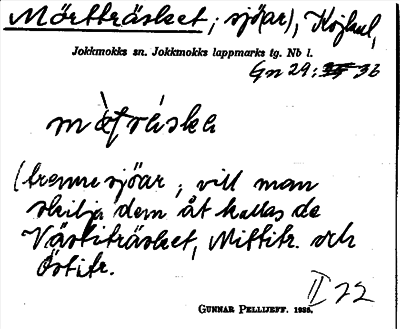 Mörtträsket, sjö(ar), Kojkul,
Jokkmokks sn. Jokkmokks lappmarks tg. Nb l.
Gn 29: 36
mò̀tráska
(trenne sjöar, vill man
skilja dem åt kallas de
Västiträsket, Mittitr. och
Östitr.
II 22
GUNNAR PELLIJEFF. 1935.